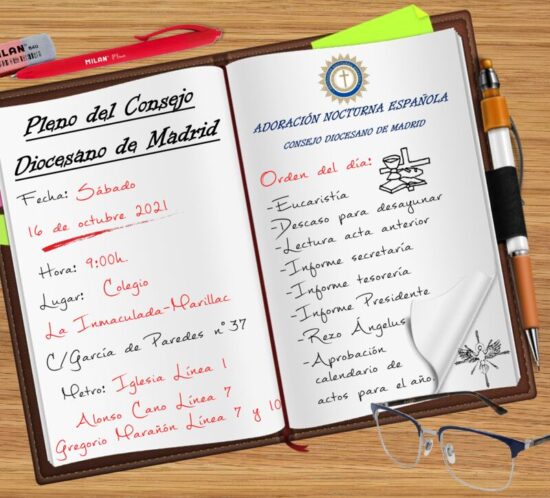 MILAN 840
MILAN P1
Pleno del Consejo
Diocesano de Madrid
Fecha: Sábado
16 de octubre 2021
Hora: 9:00h.
Lugar: Colegio
La Inmaculada-Marillac
C/García de Paredes nº 37
Metro: Iglesia Línea 1
Alonso Cano Línea 7
Gregorio Marañón Línea 7 y 10
ADORACIÓN NOCTURNA ESPAÑOLA
CONSEJO DIOCESANO DE MADRID
Orden del día:
-Eucaristía
-Descaso para desayunar
-Lectura acta anterior
-Informe secretaría
-Informe tesorería
-Informe Presidente
-Rezo Ángelus
-Aprobación
calendario de
actos para el año